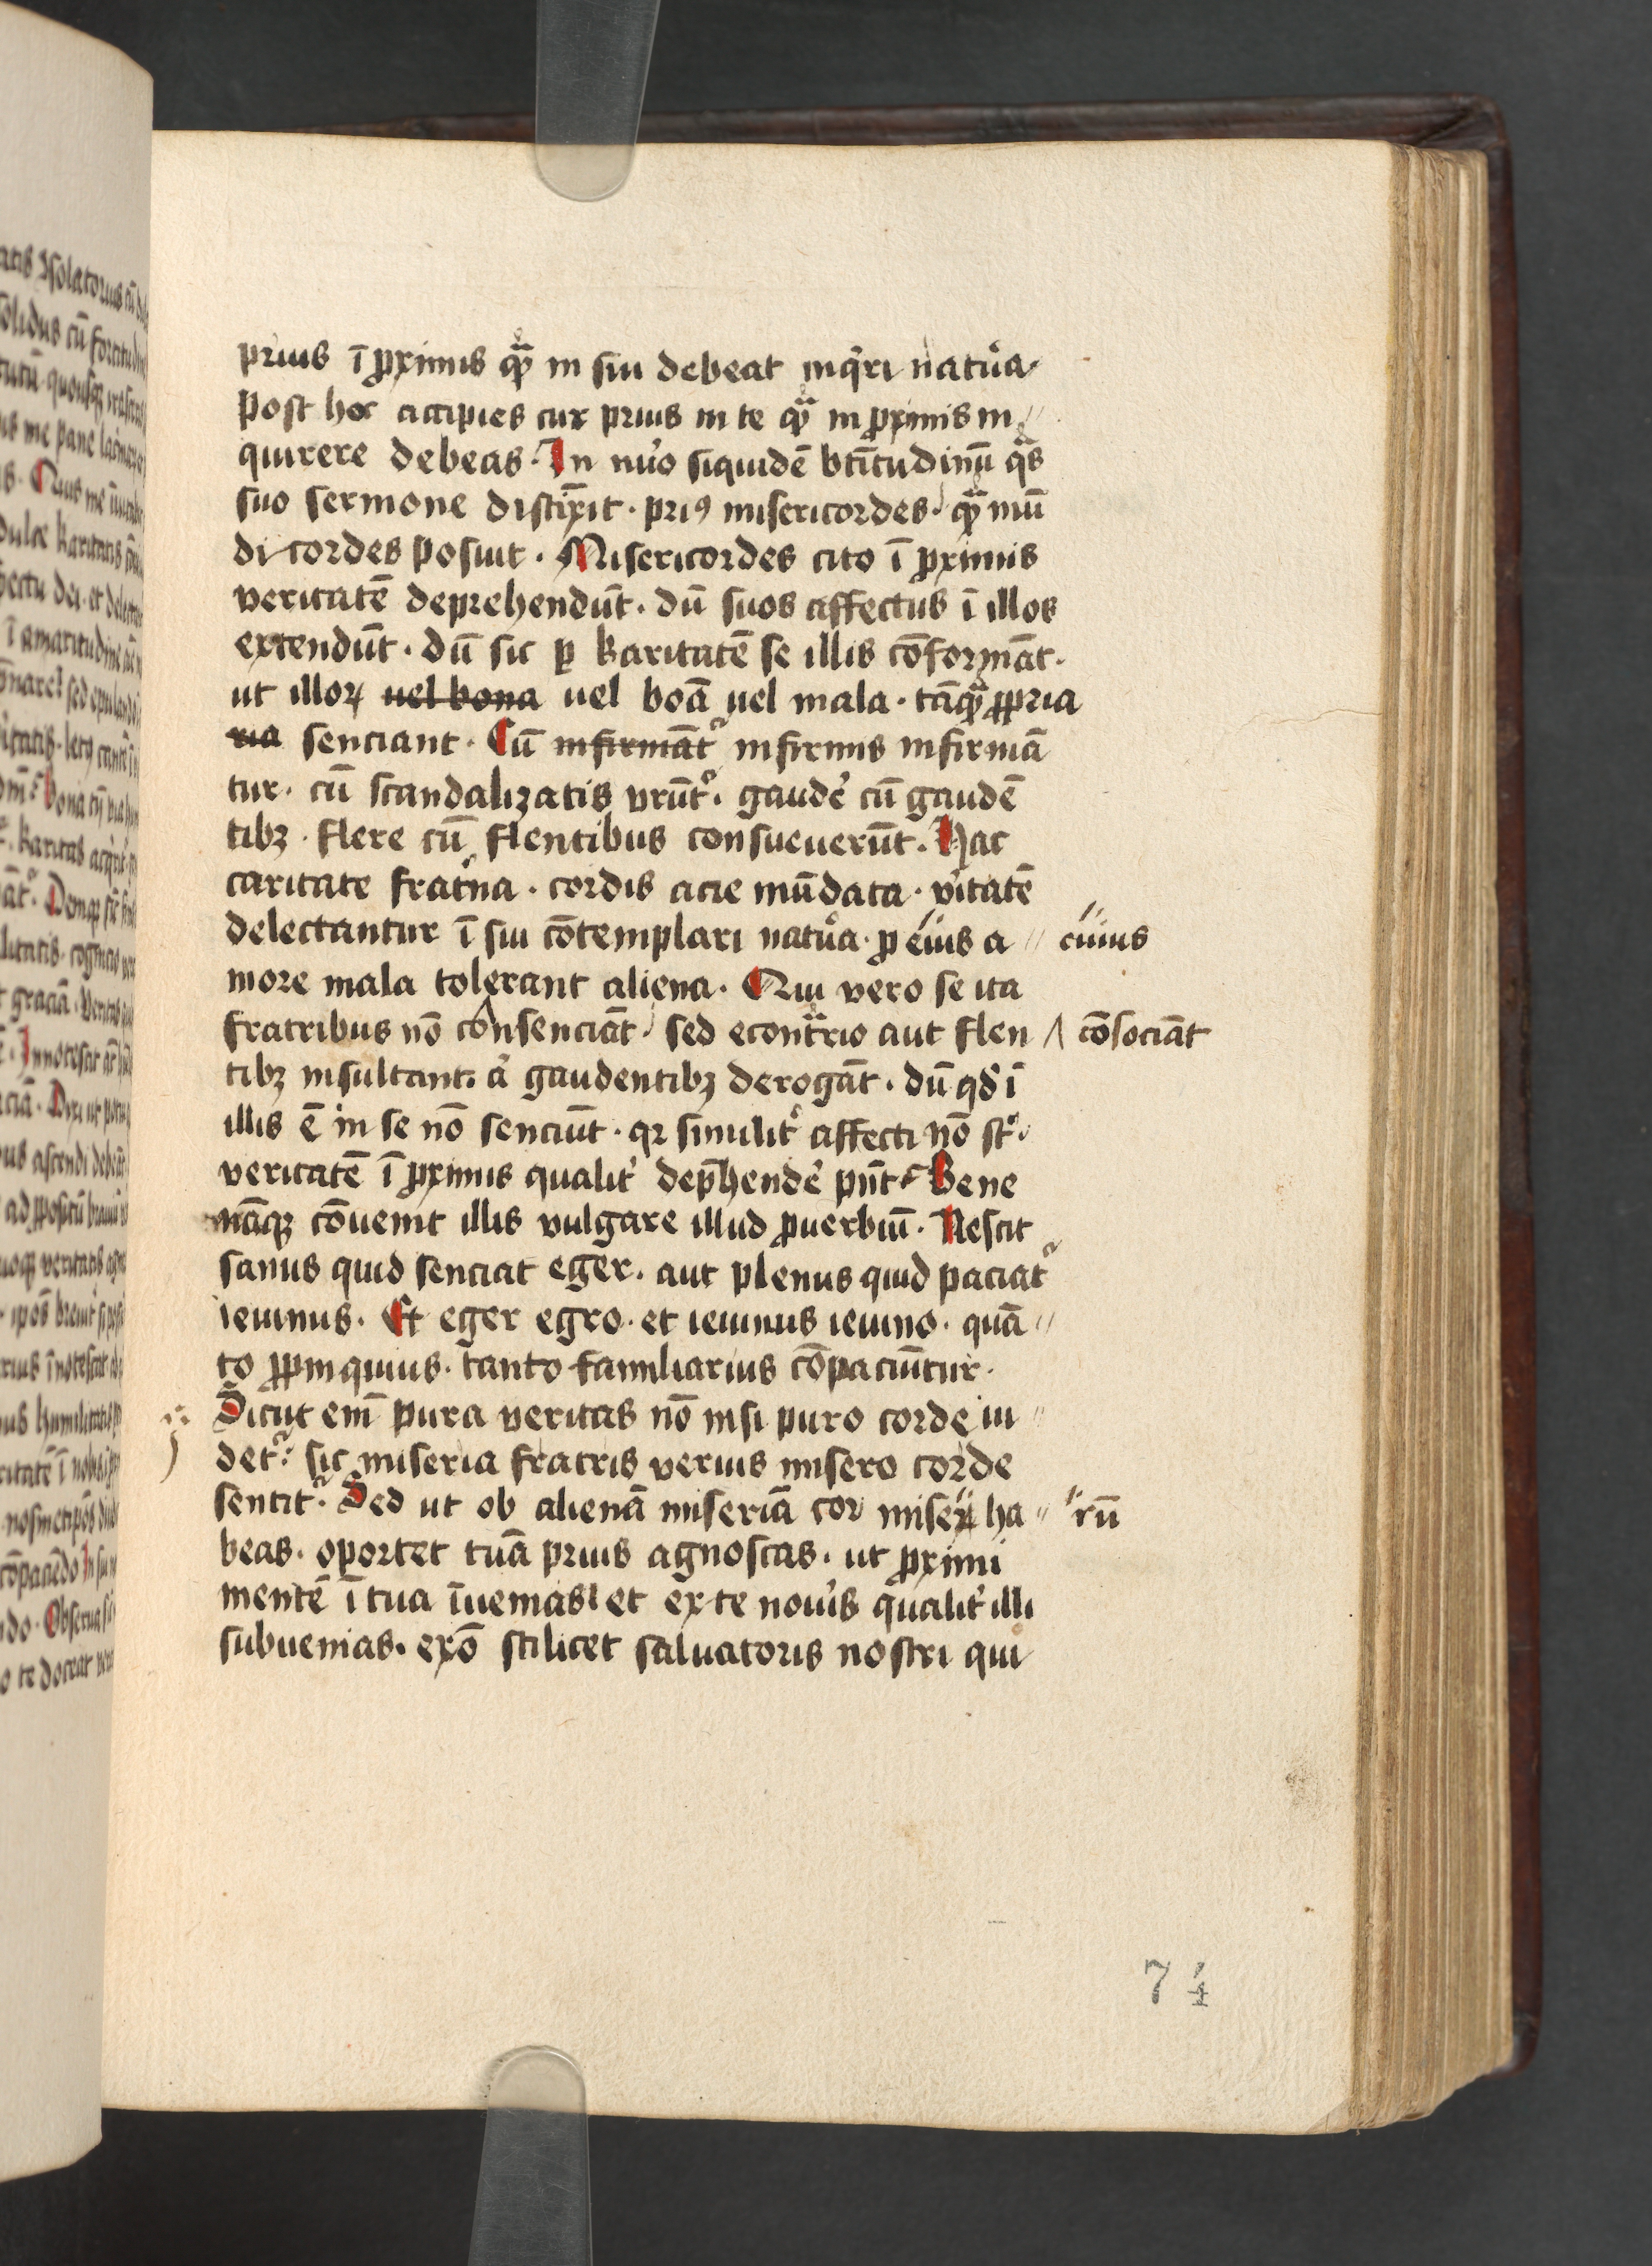 prius ī ꝓximis qͣ̄ꝫ in sui debeat inq̄ri natuͣra
post hoc accipies cur prius in te qͣ̄ꝫ in ꝓximis in //
quirere debeas. In nūo siquidē bt̄itudinū qͣs
suo sermone distīxit. priꝰ misericordes. qͣ̄ꝫ mū
di cordes posuit. Misericordes cito ī ꝓximis
veritatē deprehendūt. dū suos affectus ī illos
extendūt. dū sic ꝑ karitatē se illis cōformāt.
ut illoꝝ uel bona uel boā uel mala. tāqͣ̄ꝫ ꝓpria
ria senciant. Cū infirmātᷣ infirmis infirmā
tur. cū scandalizatis vrūtᷣ. gaudēr cū gaudē
tibꝫ. flere cū flentibus consueuerūt. Hac
caritate frat̄na. cordis acie mūdata. v̄itatē
delectantur ī sui cōtemplari natuͣra. ꝓ eius a // cuius
more mala tolerant aliena. Qui vero se ita
fratribus nō consenciāt. sed econtͣrio aut flen /\ cōsociāt
tibꝫ insultant. aͭ gaudentibꝫ derogāt. dū qd̓ ī
illis ē in se nō senciūt. qꝛ similitᷣ affecti nō st̄.
veritatē ī ꝓximis qualit̓ dep̄hendēr pn̄t. Bene
nāqꝫ cōuenit illis vulgare illud ꝓuerbiū. Nescit
sanus quid senciat eger. aut plenus quid paciatᷣ
ieiunus. Et eger egro. et ieiunus ieiuno. quā //
to ꝓpinquius. tanto familiarius cōpaciūtur.
Sicut em̄ pura veritas nō nisi puro corde ui //
detᷣ: sic miseria fratris verius misero corde
sentitᷣ. Sed ut ob alienā miseriā cor miseꝝ ha // rū
beas. oportet tuā prius agnoscas. ut ꝓximi
mentē ī tua īuenias et ex te nou̓is qualit̓ illi
subuenias. exō scilicet saluatoris nostri qui
74